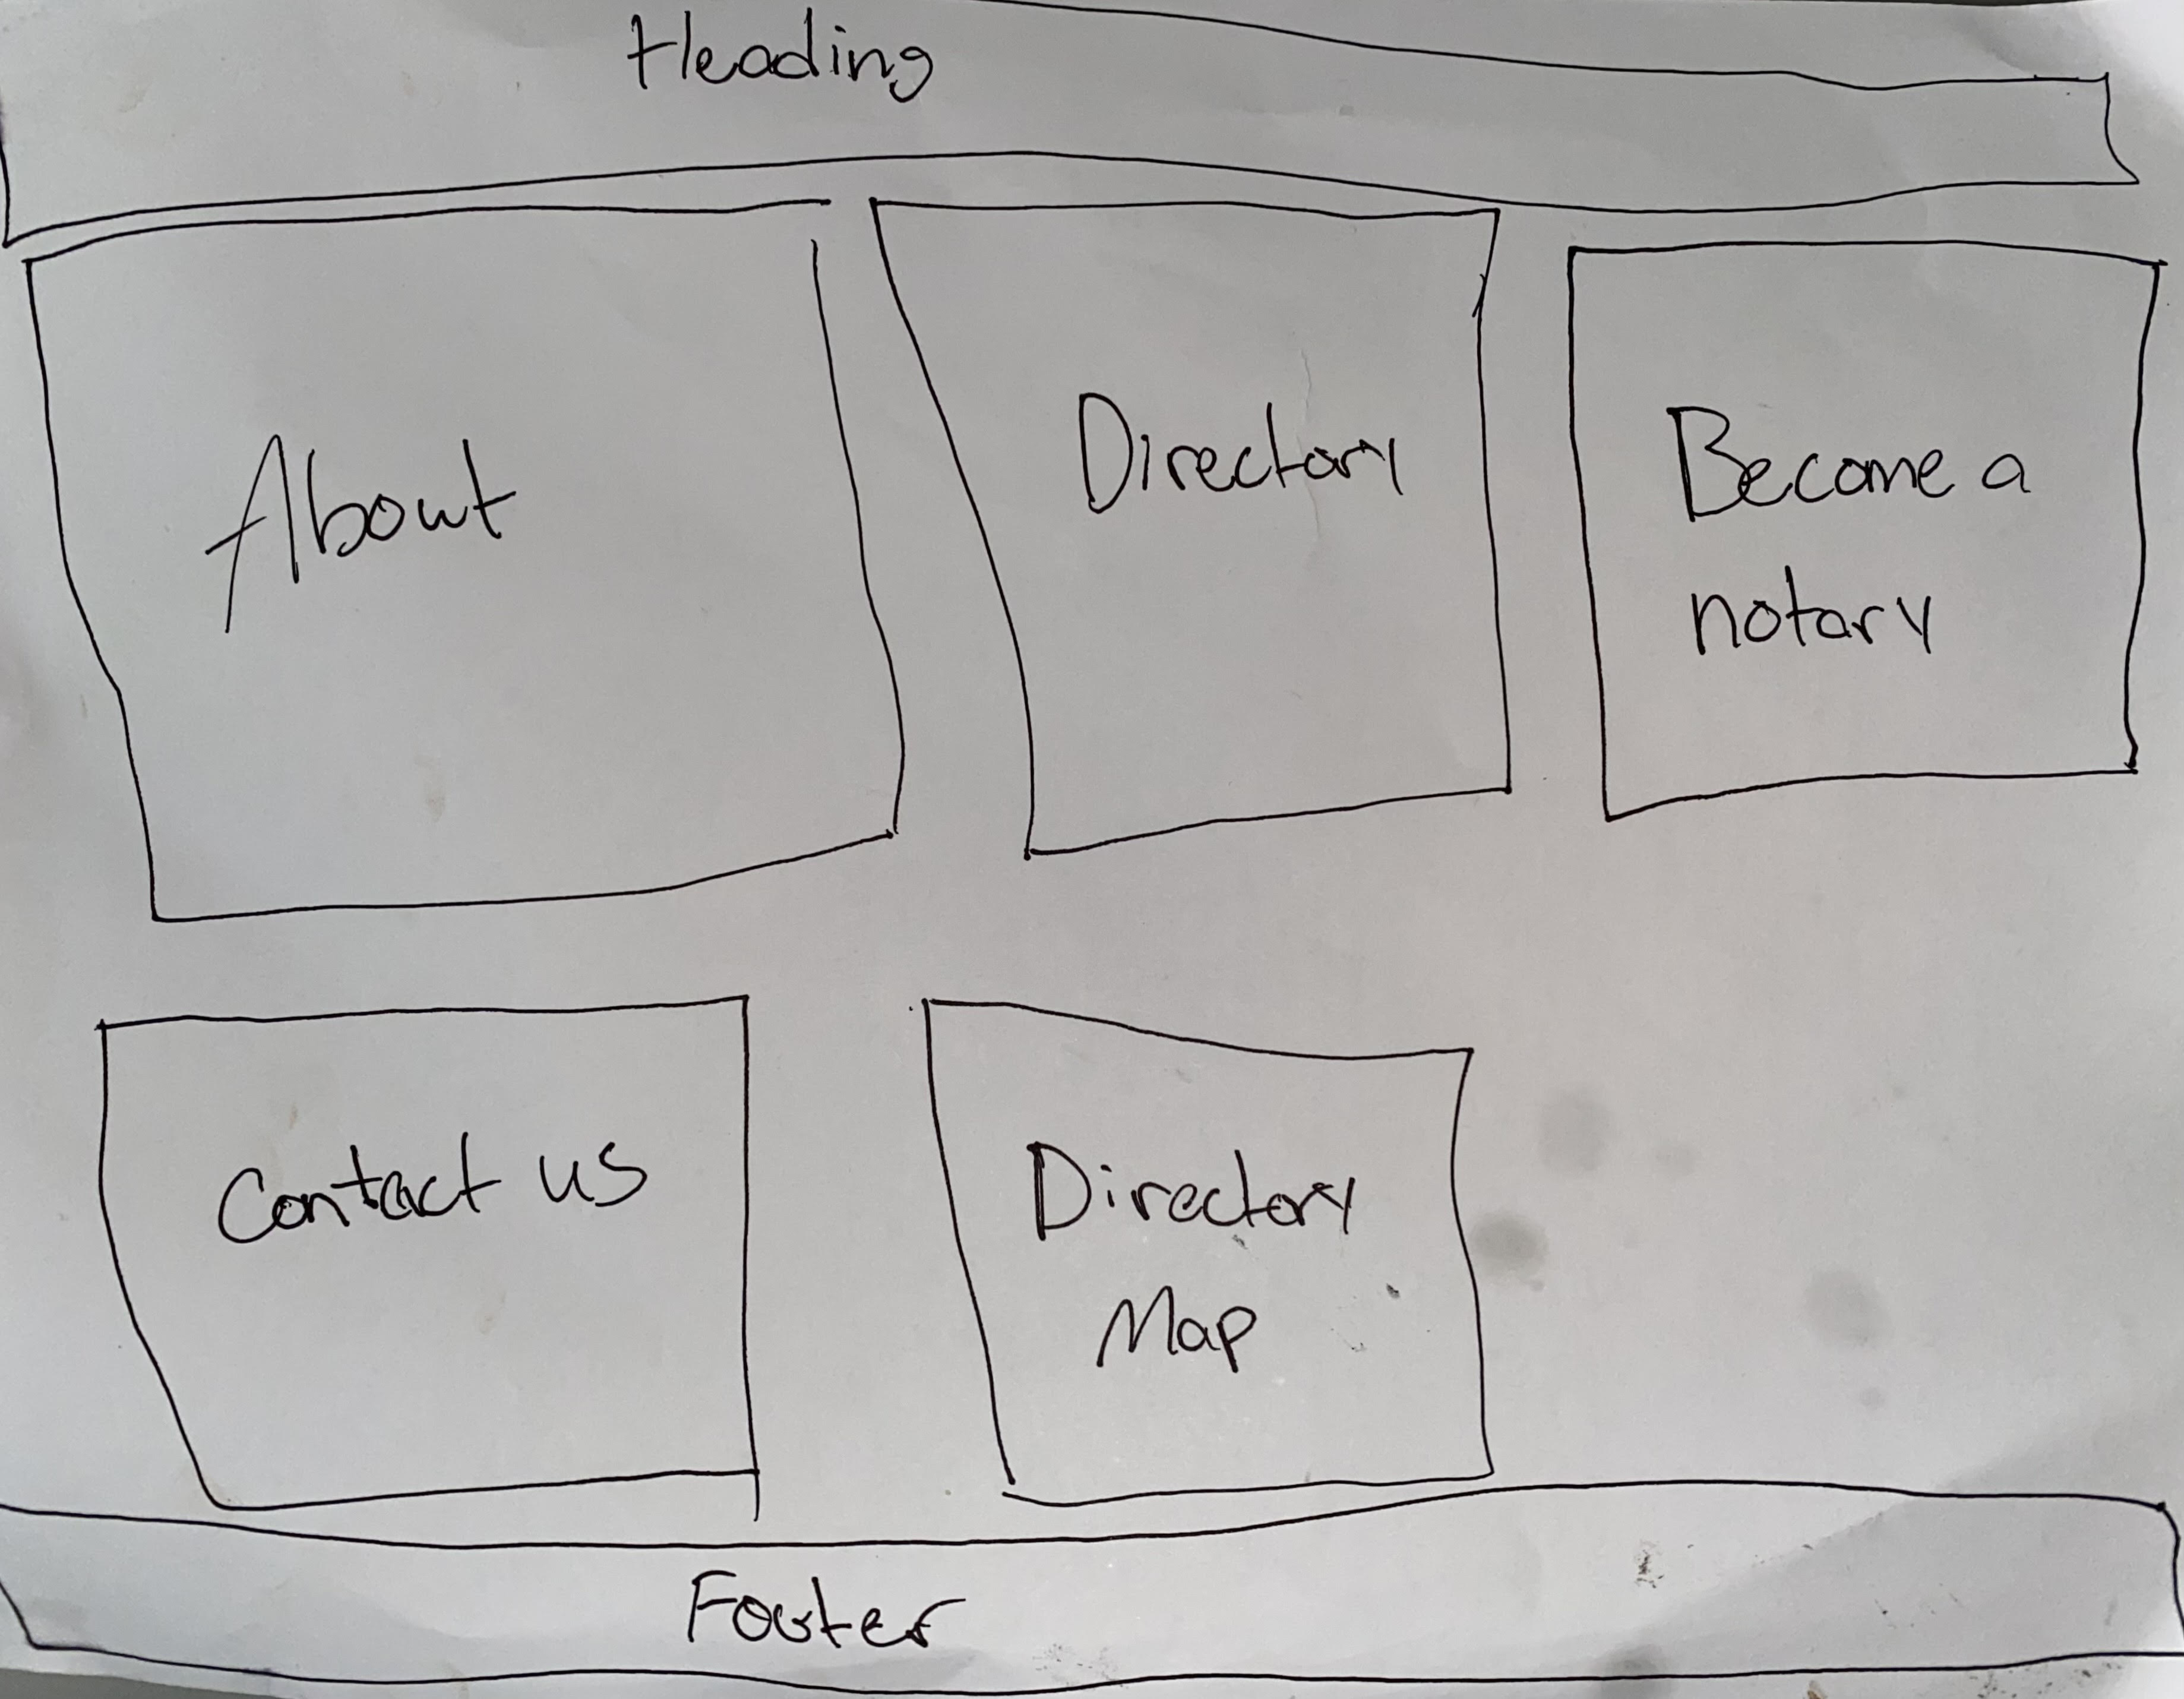 Heading
About
Directory
Become a
notary
Contact us
Directory
Map
Footer